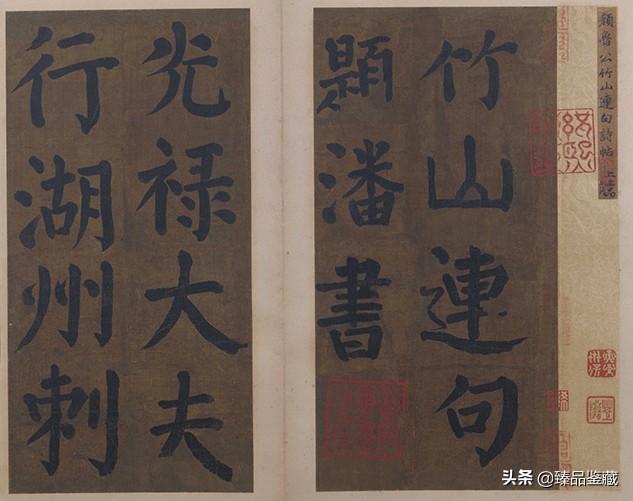 顔魯公竹山連句詩帖 上等
竹山連句
題潘書
光禄大夫
行湖州刺
紹興
头条 @臻品鉴藏